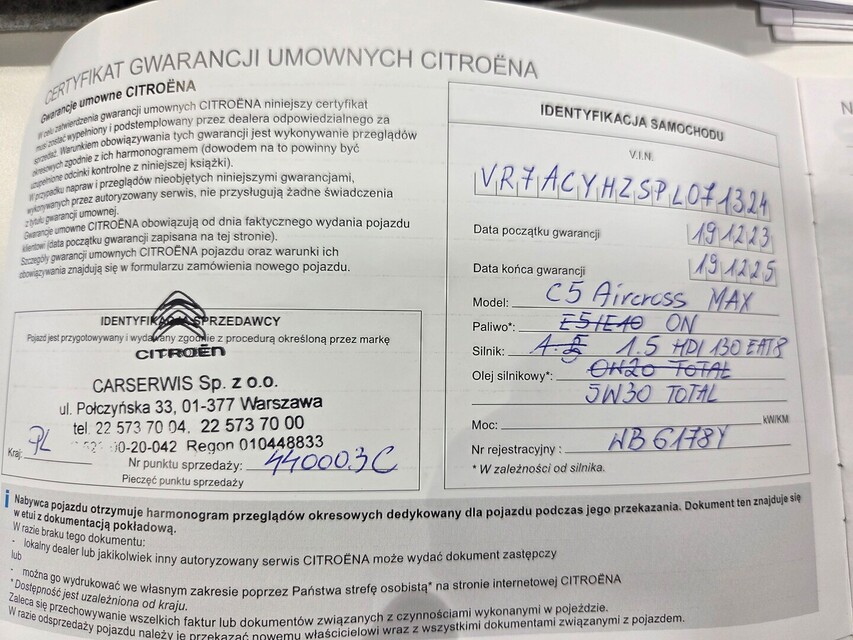 CERTYFIKAT GWARANCJI UMOWNYCH CITROËNA
Gwarancje umowne CITROËNA
W celu zatwierdzenia gwarancji umownych CITROËNA niniejszy certyfikat
musi zostać wypełniony i podstemplowany przez dealera odpowiedzialnego za
sprzedaż. Warunkiem obowiązywania tych gwarancji jest wykonywanie przeglądów
okresowych zgodnie z ich harmonogramem (dowodem na to powinny być
uzupełnione odcinki kontrolne z niniejszej książki).
W przypadku napraw i przeglądów nieobjętych niniejszymi gwarancjami,
wykonywanych przez autoryzowany serwis, nie przysługują żadne świadczenia
z tytułu gwarancji umownej.
Gwarancje umowne CITROËNA obowiązują od dnia faktycznego wydania pojazdu
klientowi (data początku gwarancji zapisana na tej stronie).
Szczegóły gwarancji umownych CITROËNA pojazdu oraz warunki ich
obowiązywania znajdują się w formularzu zamówienia nowego pojazdu.
IDENTYFIKACJA SPRZEDAWCY
Pojazd jest przygotowywany i wydawany zgodnie z procedurą określoną przez markę
CITROËN
CARSERWIS Sp. z o.o.
ul. Połczyńska 33, 01-377 Warszawa
tel. 22 573 70 04, 22 573 70 00
-20-042 Regon 010448833
Kraj: PL
Nr punktu sprzedaży: 440003C
Pieczęć punktu sprzedaży
IDENTYFIKACJA SAMOCHODU
V.I.N.
VR7ACYHZSPL071324
Data początku gwarancji 191223
Data końca gwarancji 191225
Model: C5 Aircross MAX
Paliwo*: E5/E10 ON
Silnik: 1.5 HDI 130 EAT8
Olej silnikowy*: 0W20 TOTAL
5W30 TOTAL
Moc: kW/KM
Nr rejestracyjny : WB6178Y
* W zależności od silnika.
i Nabywca pojazdu otrzymuje harmonogram przeglądów okresowych dedykowany dla pojazdu podczas jego przekazania. Dokument ten znajduje się
w etui z dokumentacją pokładową.
W razie braku tego dokumentu:
- lokalny dealer lub jakikolwiek inny autoryzowany serwis CITROËNA może wydać dokument zastępczy
lub
- można go wydrukować we własnym zakresie poprzez Państwa strefę osobistą* na stronie internetowej CITROËNA
* Dostępność jest uzależniona od kraju.
Zaleca się przechowywanie wszelkich faktur lub dokumentów związanych z czynnościami wykonanymi w pojeździe.
W razie odsprzedaży pojazdu należy je przekazać nowemu właścicielowi wraz z wszystkimi dokumentami związanymi z pojazdem.
N